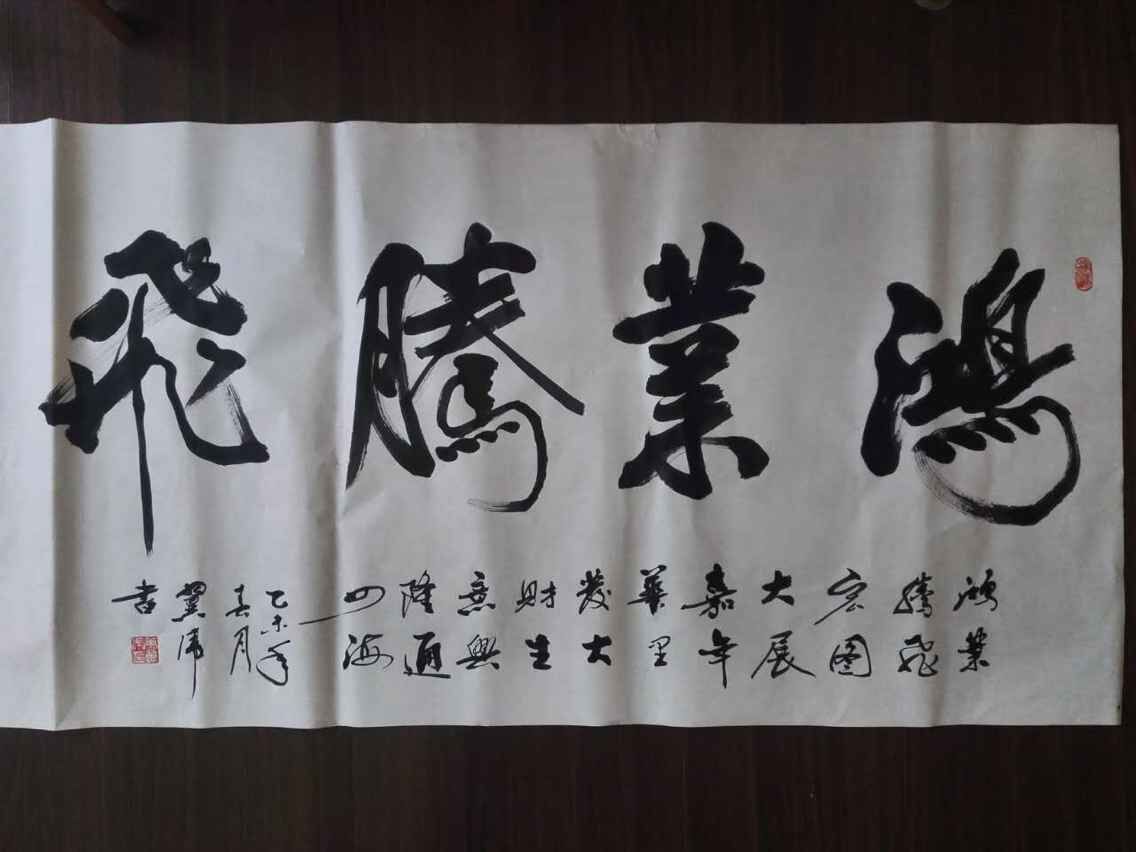 鴻業騰飛
鴻業
騰飛
宏图
大展
嘉年
華里
發大
财生
意興
隆通
四海
乙未年
春月
書